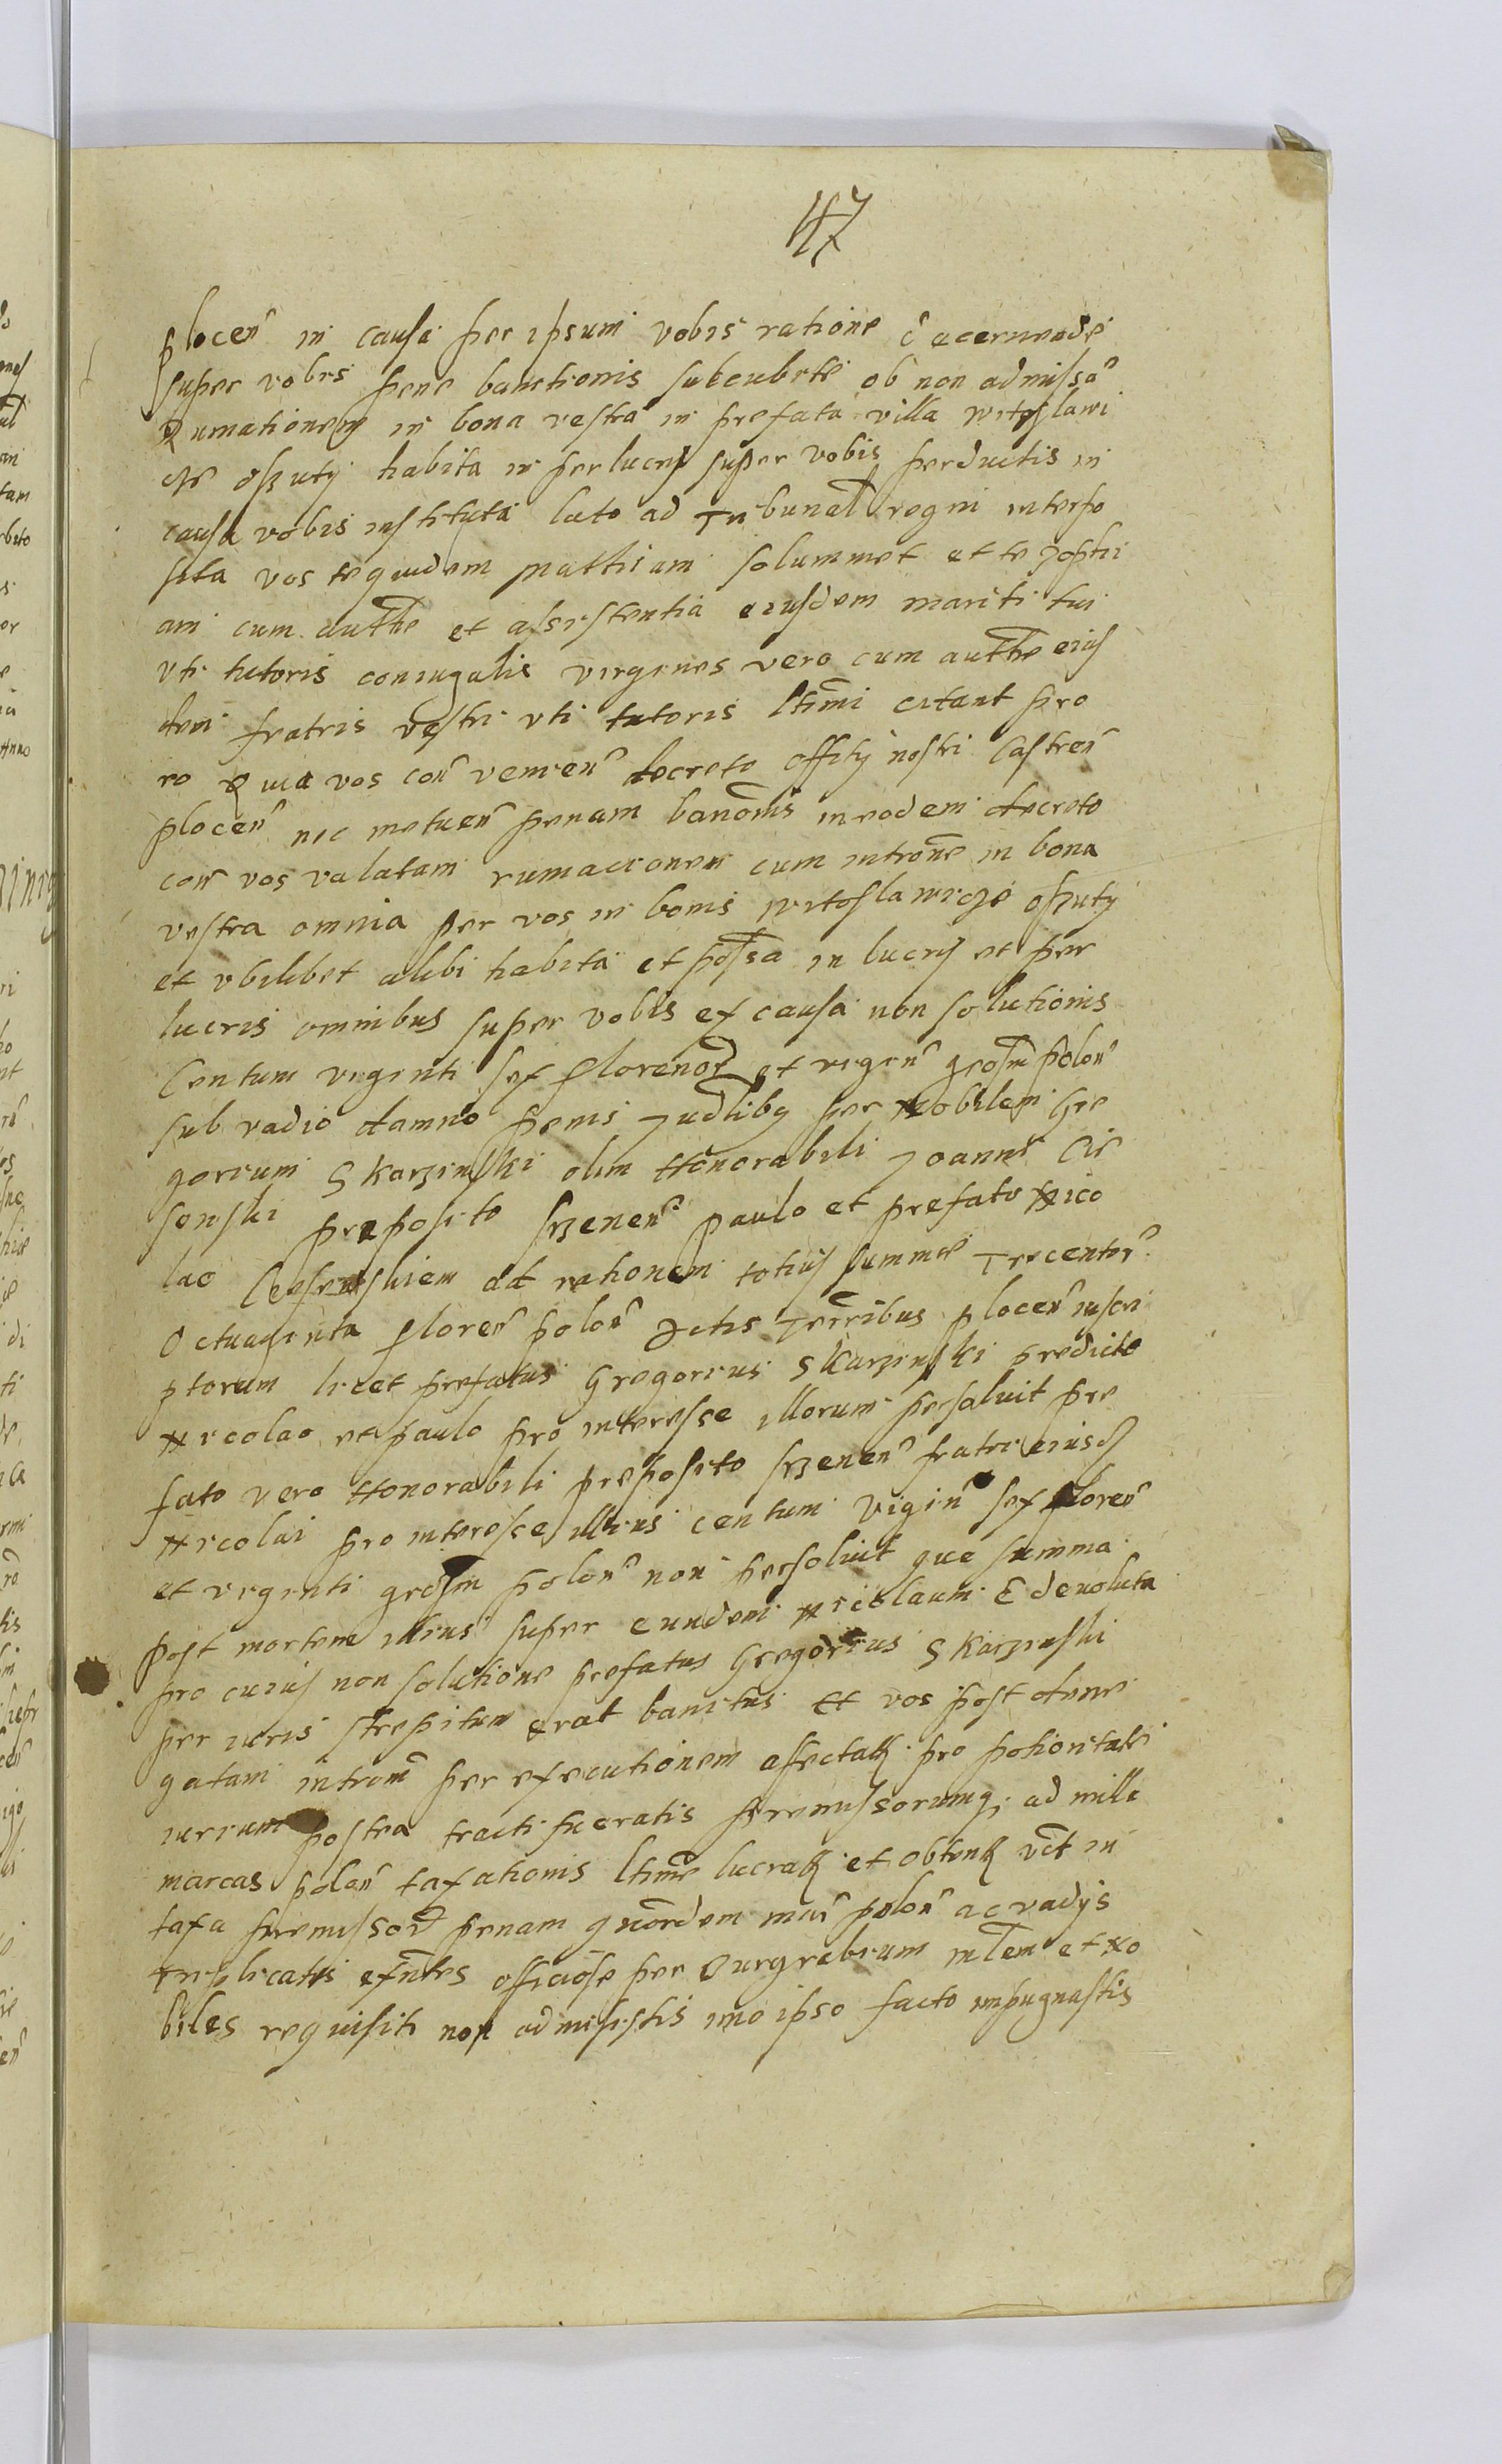 47
plocen in causa per ipsum vobis ratione decernende
super vobis pene banitionis subeunte ob non admissa
Rumationem in bona vestra in prefata villa witoslawi
cze Oputy habita in perlucris super vobis perductis in
causa vobis instituta lato ad Tribunal regni interpo
sita vos te quidem Mathiam solummet et te zophi
am cum authe et assistentia eiusdem mariti tui
vti tutoris coniugalis virgines vero cum authe eius
dem fratris vestri vti tutoris ltimi citant pro
eo Quia vos con venien decreto Offity nostri Castren
plocen nec metuen penam banonis in eodem decreto
con vos valatam rumacionem cum introne in bona
vestra omnia per vos in bonis witoslawicze oputy
et vbilibet alibi habita et possa in lucris et per
lucris omnibus super vobis ex causa non solutionis
Centum viginti sex florenor et vigin grosm polon
sub vadio damno penis Judlibq per Nobilem Gre
gorium Skarzinski olim Honorabili Joanni Cie
sonski preposito srzenen paulo et prefato Nico
lao ad rationem totius summe Trecentor
Octuaginta floren polon Actis Terribus plocen inscri
ptorum licet prefatus Gregorius Skarzinski predicto
Nicolao et paulo pro interesse illorum persoluit pre
fato vero Honorabili preposito srzenen fratri eiusd
Nicolai pro interesse illius centum vigin sex floren
et viginti grosm polon non persoluit que summa
post mortem illius super eundem Nicolaum E devoluta
pro cuius non solutione prefatus Gregorius Skarzinski
per iuris strepitum erat banitus Et vos post dene
gatam introm per executionem affectatq pro potioritati
iurium postea tracti fueratis premissorumq ad mille
marcas polon taxationis ltime lucratq et obtentq vct in
taxa premissor penam quordem mar polon ac vadys
triplicatis exntes officiose per Burgrabium mtem et No
biles requisiti non admisistis imo ipso facto impugnastis